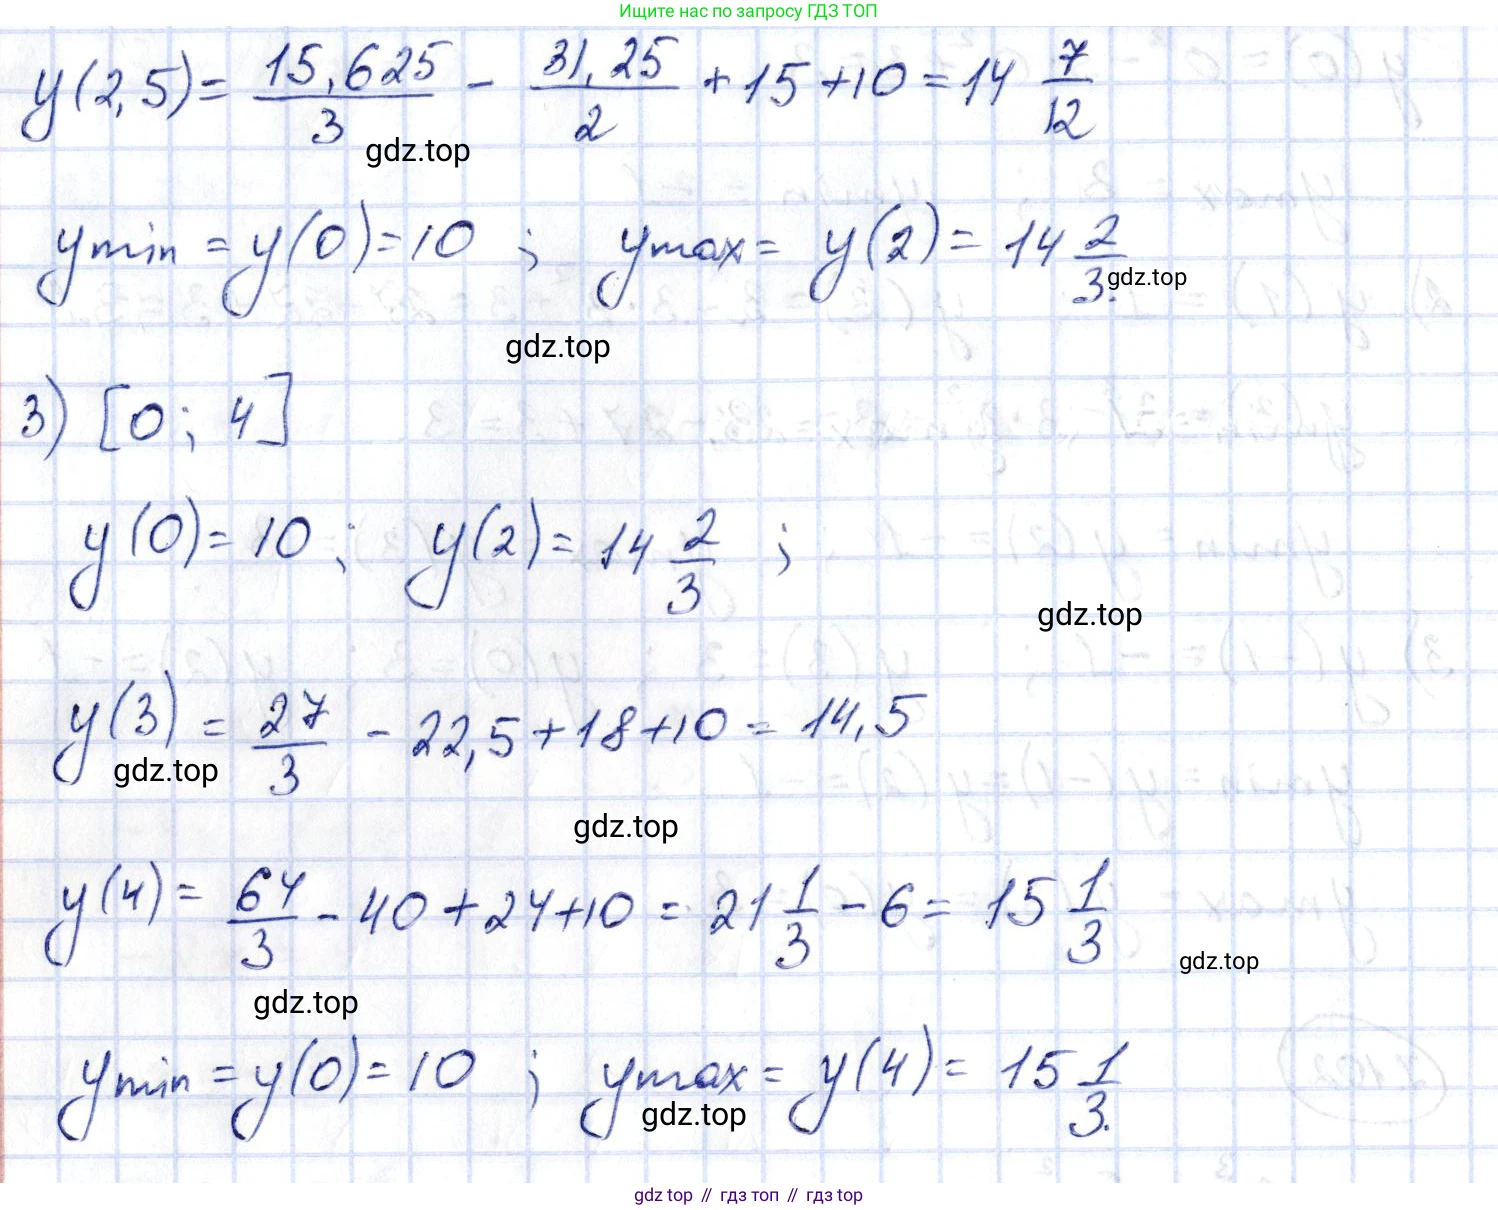 Ищите нас по запросу ГДЗ ТОП
y(2,5) = 15,625/3 - 31,25/2 + 15 + 10 = 14 7/12
gdz.top
ymin = y(0) = 10 ; ymax = y(2) = 14 2/3.
gdz.top
gdz.top
3) [0; 4]
y(0) = 10 ; y(2) = 14 2/3 ;
gdz.top
y(3) = 27/3 - 22,5 + 18 + 10 = 14,5
gdz.top
gdz.top
y(4) = 64/3 - 40 + 24 + 10 = 21 1/3 - 6 = 15 1/3
gdz.top
gdz.top
ymin = y(0) = 10 ; ymax = y(4) = 15 1/3.
gdz.top
gdz top // гдз топ // гдз top